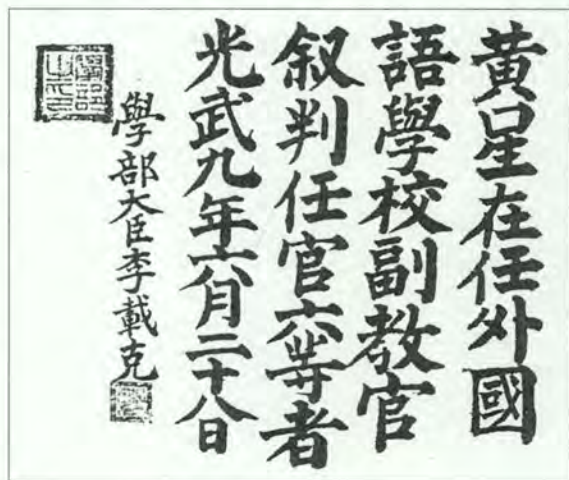 黄星在任外國
語學校副教官
叙判任官六等者
光武九年六月二十八日
學部大臣李載克